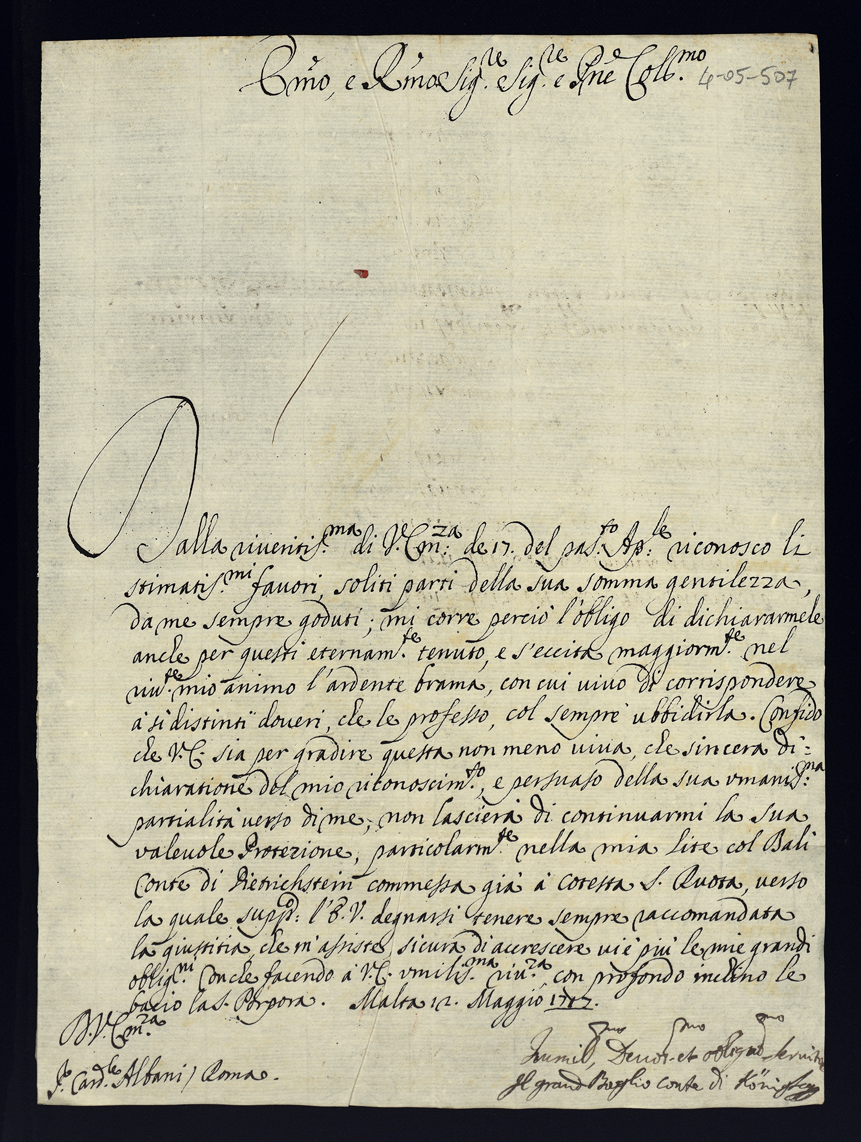 Em̃o, e Rm̃o Sig.re e Sig.re e Prñe Coll.mo 4-05-507
Dalla riveritis.ma di V. Em.za de 17. del pas.to Ap.le riconosco li
stimatis.mi favori, soliti parti della sua somma gentilezza,
da me sempre goduti; mi corre perciò l'obligo di dichiararmele
anche per questi eternam.te tenuto, e s'eccita maggiorm.te nel
riv.te mio animo l'ardente brama, con cui vivo di corrispondere
à si distinti doveri, che le professo, col sempre ubbidirla. Confido
che V.E. sia per gradire questa non meno viva, che sincera di=
chiaratione del mio riconoscim.to, e persuaso della sua umanis.ma
partialità verso di me, non lascierà di continuarmi la sua
valevole Protezione, particolarm.te nella mia lite col Balì
Conte di Dietrichstein commessa già à cotesta S. Ruota, verso
la quale supp.co l'E.V. degnarsi tenere sempre raccomandata
la giustitia, che m'assiste, sicura di accrescere vie più le mie grandi
oblig.ni Onde facendo à V.E. umilis.ma riv.za, con profondo inclino le
bacio la S. Porpora. Malta 12. Maggio 1717.
D.V. Em.za
Humil.mo Devot.mo et oblig.mo servit
S.r Card.le Albani / Roma.
Il grand Baglio conte di Königsegg